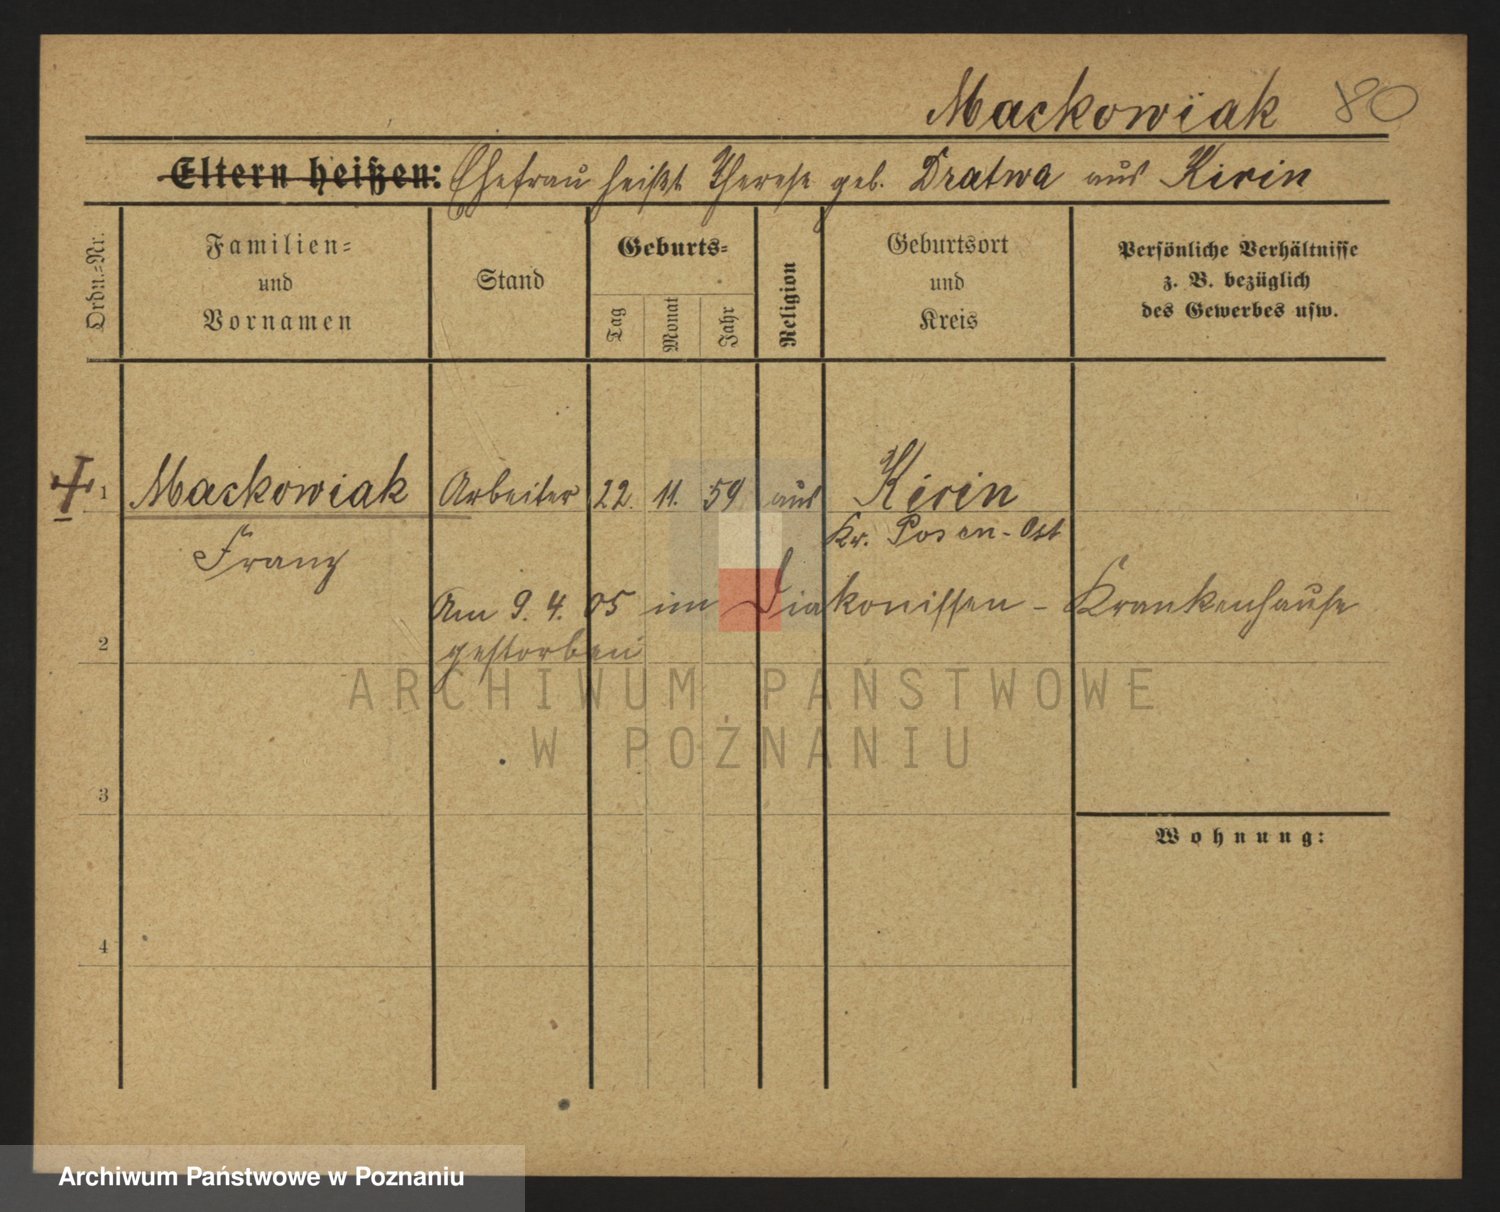 Mackowiak 80
Eltern heißen: Ehefrau heißt Therese geb. Dratwa aus Kirin
Ordn.-Nr.
Familien-
und
Vornamen
Stand
Geburts-
Tag
Monat
Jahr
Religion
Geburtsort
und
Kreis
Persönliche Verhältnisse
z. B. bezüglich
des Gewerbes usw.
1 Mackowiak Arbeiter 22. 11. 59 aus Kirin
Franz Kr. Posen-Ost
Am 9. 4. 05 im Diakonissen - Krankenhause
2 gestorben
ARCHIWUM PAŃSTWOWE
W POZNANIU
3
Wohnung:
4
Archiwum Państwowe w Poznaniu